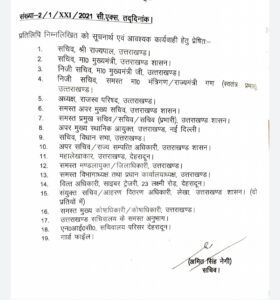 संख्या-2/1/XXI/2021 सी.एक्स. तद्‌दिनांक।
प्रतिलिपि निम्नलिखित को सूचनार्थ एवं आवश्यक कार्यवाही हेतु प्रेषित:-
1. सचिव, श्री राज्यपाल, उत्तराखण्ड।
2. सचिव, मा0 मुख्यमंत्री, उत्तराखण्ड शासन।
3. निजी सचिव, मा0 मुख्यमंत्री जी, उत्तराखण्ड।
4. निजी सचिव, समस्त मा0 मंत्रिगण/राज्यमंत्री गण (स्वतंत्र प्रभार),
उत्तराखण्ड।
5. अध्यक्ष, राजस्व परिषद, उत्तराखण्ड।
6. समस्त अपर मुख्य सचिव, उत्तराखण्ड शासन।
7. समस्त प्रमुख सचिव/सचिव/सचिव (प्रभारी), उत्तराखण्ड शासन।
8. अपर मुख्य स्थानिक आयुक्त, उत्तराखण्ड, नई दिल्ली।
9. सचिव, विधान सभा, उत्तराखण्ड।
10. अपर सचिव/राज्य सम्पत्ति अधिकारी, उत्तराखण्ड शासन।
11. महालेखाकार, उत्तराखण्ड, देहरादून।
12. समस्त मण्डलायुक्त/जिलाधिकारी, उत्तराखण्ड।
13. समस्त विभागाध्यक्ष तथा प्रधान कार्यालयाध्यक्ष, उत्तराखण्ड।
14. वित्त अधिकारी, साइबर ट्रेजरी, 23 लक्ष्मी रोड, देहरादून।
15. संयुक्त सचिव/आहरण वितरण अधिकारी, लेखा, उत्तराखण्ड शासन। (दो
प्रतियों में)
16. समस्त मुख्य कोषाधिकारी/कोषाधिकारी, उत्तराखण्ड।
17. उत्तराखण्ड सचिवालय के समस्त अनुभाग।
18. एन0आई0सी0 सचिवालय परिसर देहरादून।
19. गार्ड फाईल।
(अमित सिंह नेगी)
सचिव।